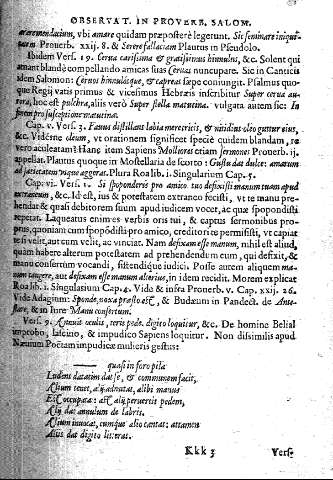 OBSERVAT. IN PROVERB. SALOM.
metendacium, vbi amare quidam præposterè legerunt. Sic seminare iniqui-
Prouerb. xxij. 8. & Serere fallaciam Plautus in Pseudolo.
Ibidem Vers. 19. Cerua carissima & gratissimus hinnulus, &c. Solent qui
amant blandè compellando amicas suas Ceruas nuncupare. Sic in Canticis
idem Salomon: Ceruus hinnulusque, & capreæ coniungit. Psalmus quo-
que Regij vatis primus & vicesimus Hebræis inscribitur Super cerua au-
rora, hoc est pulchra, aliis verò Super stella matutina. vulgata autem sic: In
finem pro susceptione matutina.
Cap. v. Vers. 3. Fauus distillans labia meretricis, & nitidius oleo guttur eius,
&c. Vidétne oleum, vt orationem significet specie quidem blandam, re
vero aculeatam? Hanc item Sapiens Molliores etiam sermones Prouerb. ij.
appellat. Plautus quoque in Mostellaria de scorto: Gustu dat dulce: amarum
ad satietatem vsque aggerat. Plura Roa lib. 1. Singularium Cap. 5.
Cap. vi. Vers. 1. Si spoponderis pro amico tuo defixisti manum tuam apud
extraneum, &c. Id est, ius & potestatem extraneo fecisti, vt te manu pre-
hendat & quasi debitorem suum apud iudicem vocet, ac quæ spopondisti
repetat. Laqueatus enim es verbis oris tui, & captus sermonibus pro-
priis, quoniam cum spopõdisti pro amico, creditori te permisisti, vt capiat
te si velit, aut cum velit, ac vinciat. Nam defixam esse manum, nihil est aliud,
quàm habere alterum potestatem ad prehendendum eum, qui defixit, &
manu consertum vocandi, sistendíque iudici. Posse autem aliquem ma-
num tangere, aut defixam esse manum alterius, in idem recidit. Morem explicat
Roa lib. 1. Singularium Cap. 4. Vide & infra Prouerb. v. Cap. xxij. 26.
Vide Adagium: Sponde, noxa præsto est, & Budæum in Pandect. de Ante-
stare, & in Iure Manu consertum.
Vers. 9. Annuit oculis, terit pede, digito loquitur, &c. De homine Belial
improbo, lasciuo, & impudico Sapiens loquitur. Non dissimilis apud
Næuium Poëtam impudicæ mulieris gestus:
quasi in foro pila
Ludens datatim dat se, & communem facit,
Alium tenet, alij adnutat, alibi manus
Est occupata: est, alij peruertit pedem,
Alij dat annulum de labris.
Alium inuocat, cumque alio cantat: attamen
Aliis dat digito literas.
Kkk 3
Vers.